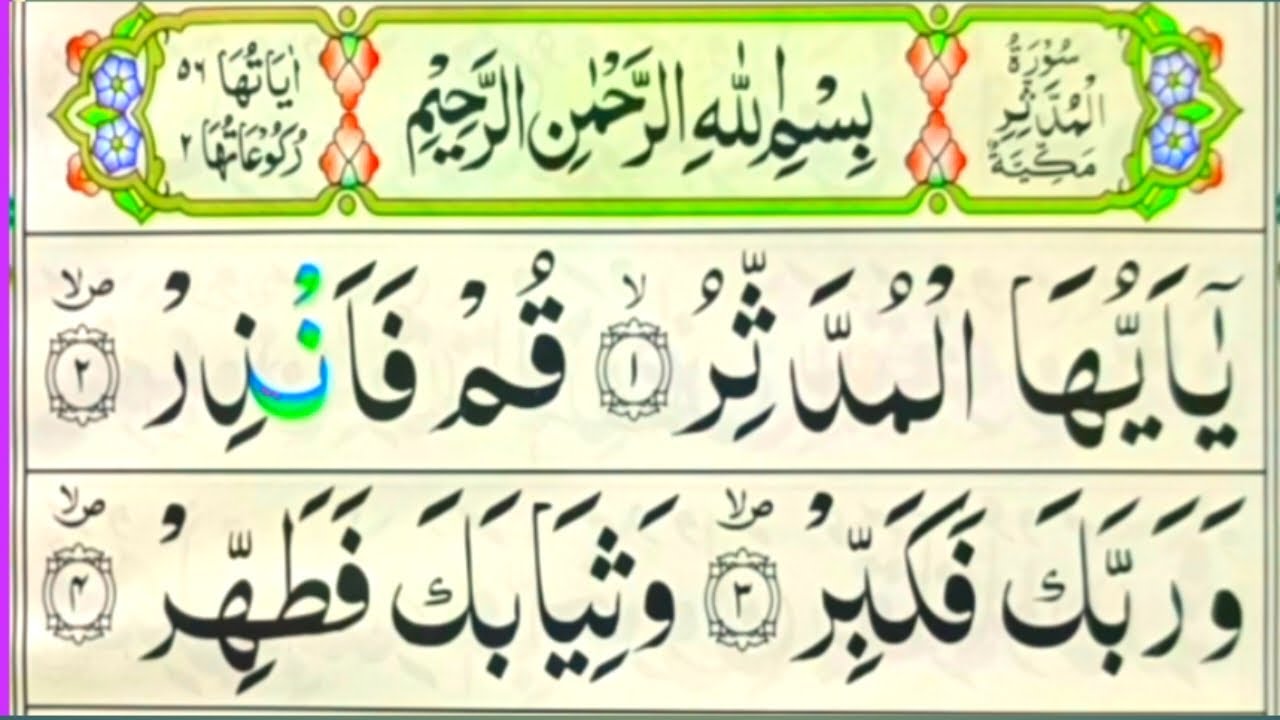 سُوْرَةُ
الْمُدَّثِّرِ
مَكِّيَّةٌ
بِسْمِ اللّٰهِ الرَّحْمٰنِ الرَّحِيْمِ
اٰيَاتُهَا ٥٦
رُكُوْعَاتُهَا ٢
يٰٓاَيُّهَا الْمُدَّثِّرُ ۙ﴿١﴾ قُمْ فَاَنْذِرْ ۪ۙ﴿٢﴾
وَرَبَّكَ فَكَبِّرْ ۪ۙ﴿٣﴾ وَثِيَابَكَ فَطَهِّرْ ۪ۙ﴿٤﴾